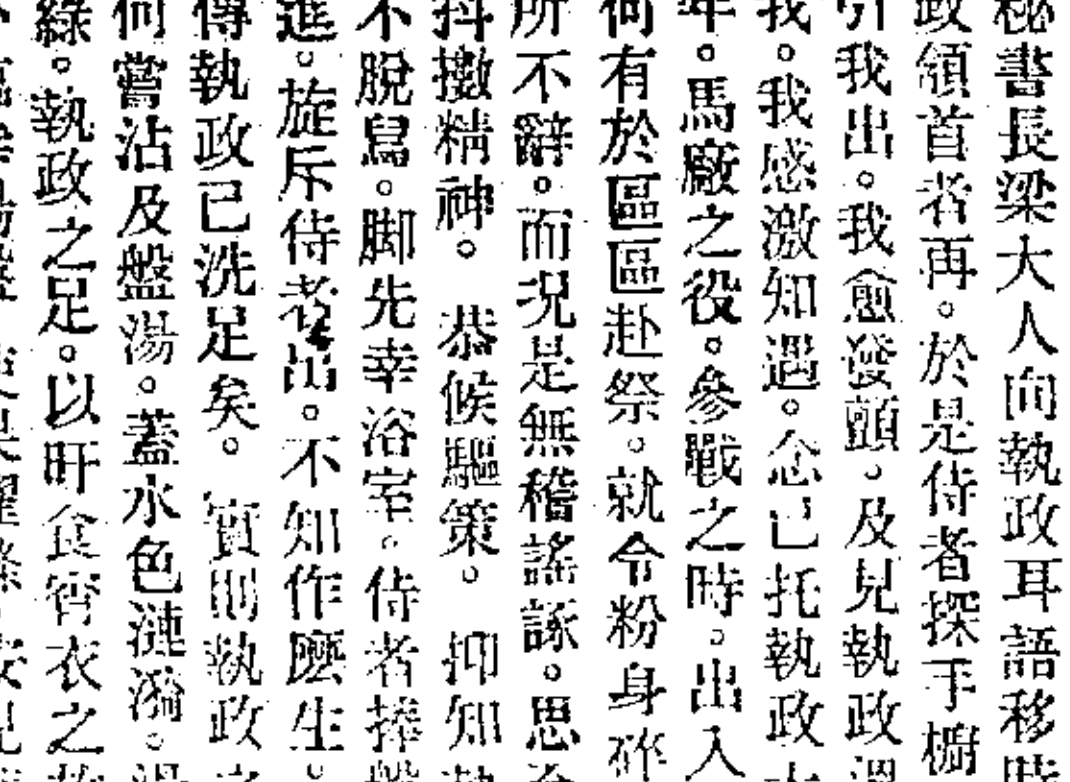 秘書長梁大人向執政耳語移時
政頷首者再。於是侍者探手櫥
引我出。我愈發顫。及見執政
我。我感激知遇。念已托執政
年。馬廠之役。參戰之時。出入
何有於區區赴祭。就令粉身碎
所不辭。而况是無稽謠諑。思
抖擻精神。恭候驅策。抑知執
不脫舄。脚先幸浴室。侍者捧盤
進。旋斥侍者出。不知作麽生。
傳執政已洗足矣。實則執政之
何嘗沾及盤湯。蓋水色漣漪。湯
綠。執政之足。以旰食宵衣之故